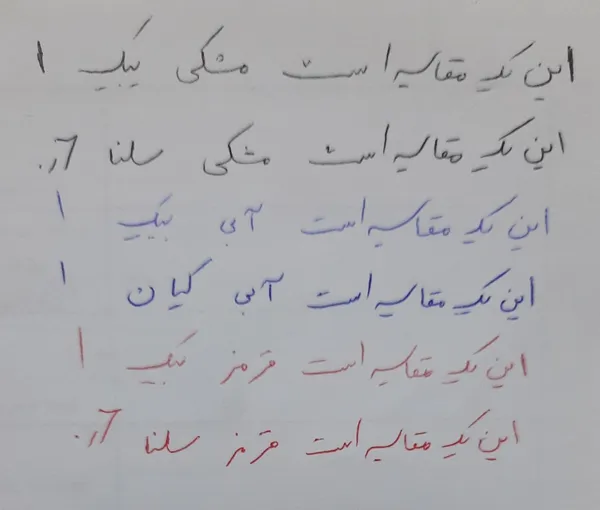 این یک مقایسه است مشکی بیک ۱
این یک مقایسه است مشکی سلنا ۰٫۷
این یک مقایسه است آبی بیک ۱
این یک مقایسه است آبی کیان ۱
این یک مقایسه است قرمز بیک ۱
این یک مقایسه است قرمز سلنا ۰٫۷